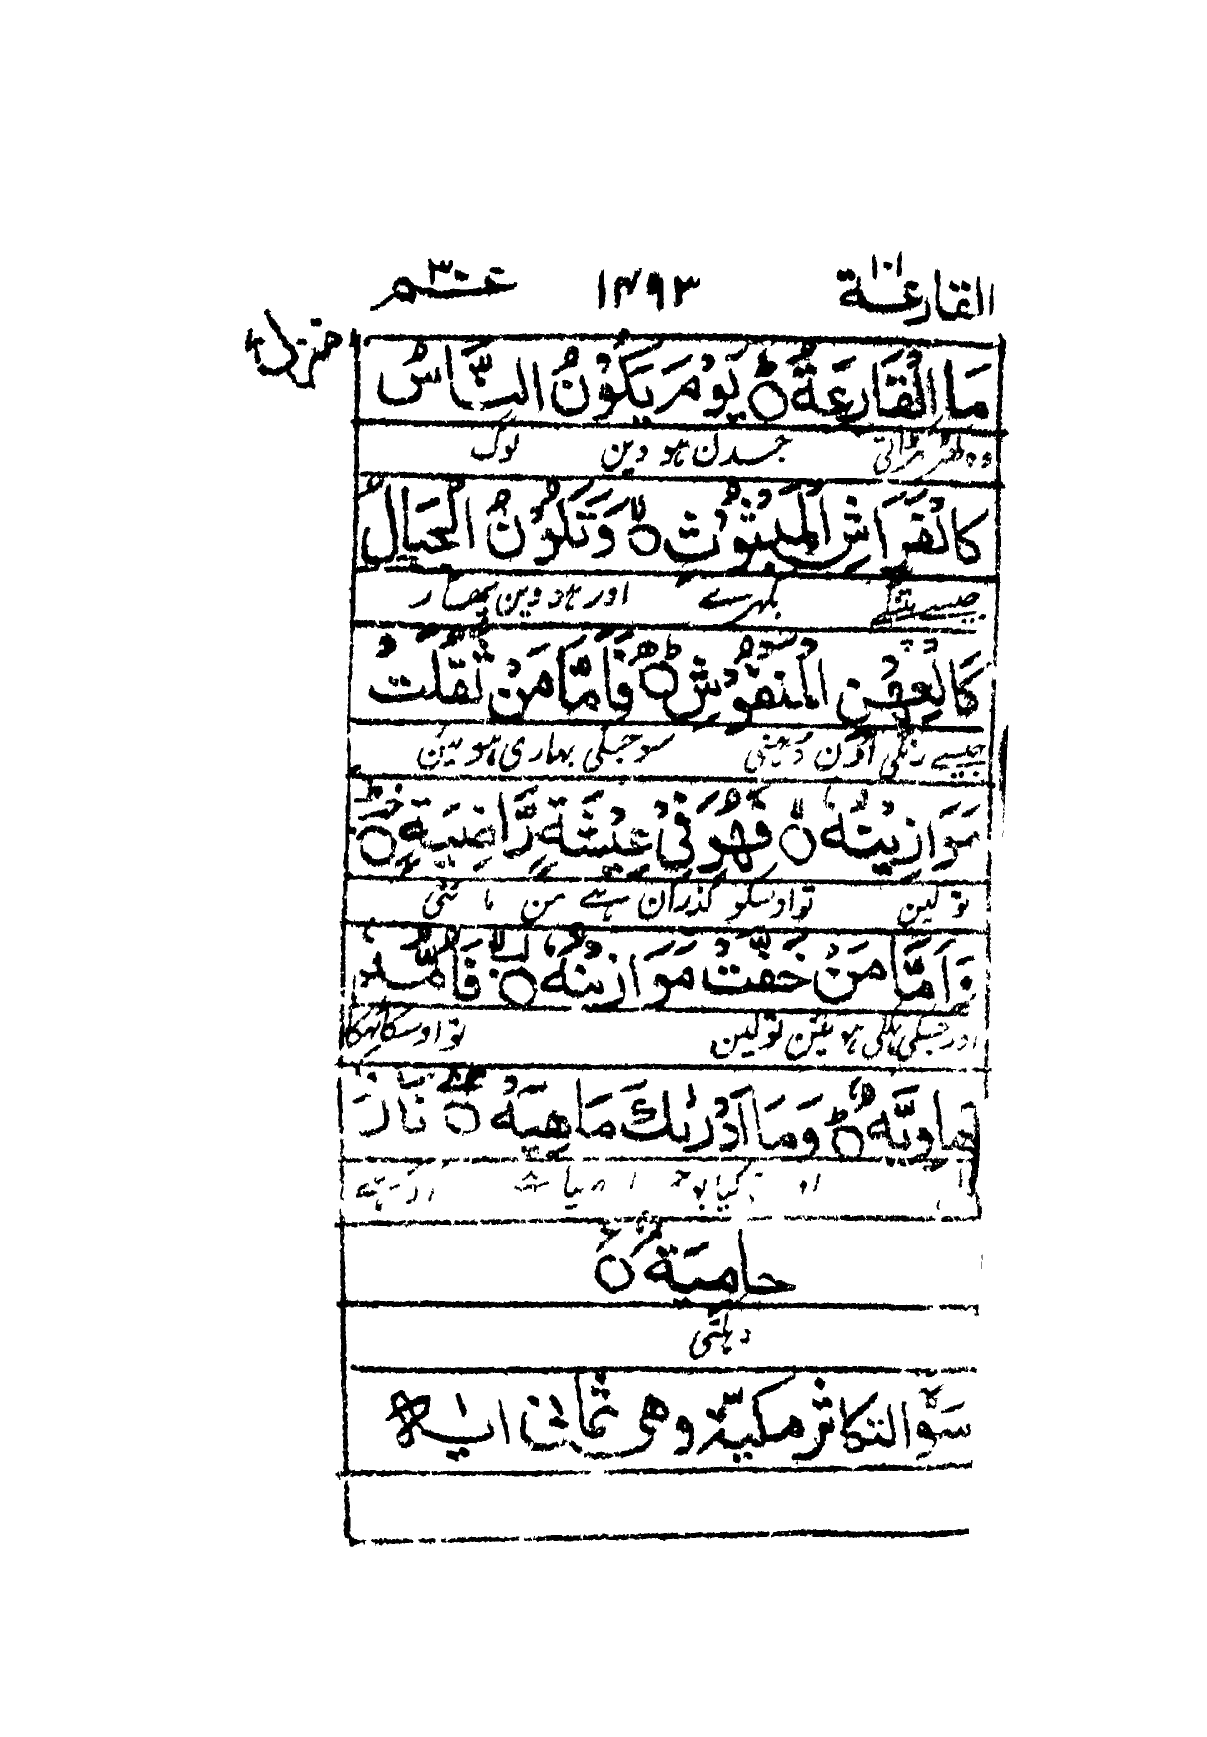 القارعة ١٠١ ١٤٩٣ عمّ ٣٠
منزل ٧
مَا الْقَارِعَةُ ۝ يَوْمَ يَكُوْنُ النَّاسُ
وہ کھڑکھڑاتی جسدن ہو وین لوگ
كَالْفَرَاشِ الْمَبْثُوْثِ ۝ وَتَكُوْنُ الْجِبَالُ
جیسے پتنگے بکھرے اور ہو وین پہاڑ
كَالْعِهْنِ الْمَنْفُوْشِ ۝ فَاَمَّا مَنْ ثَقُلَتْ
جیسے رنگی اوُن دُھنی سو جسکی بھاری ہوئین
مَوَازِيْنُهٗ ۝ فَهُوَ فِيْ عِيْشَةٍ رَّاضِيَةٍ ۝
تولین تو اوسکو گذران ہے من مانتی
وَاَمَّا مَنْ خَفَّتْ مَوَازِيْنُهٗ ۝ فَاُمُّهٗ
اور جسکی ہلکی ہوئین تولین تو اوسکا ٹھکانا
هَاوِيَةٌ ۝ وَمَا اَدْرٰىكَ مَاهِيَهْ ۝ نَارٌ
حَامِيَةٌ ۝
دہکتی
سورة التكاثر مكية وهي ثماني اية